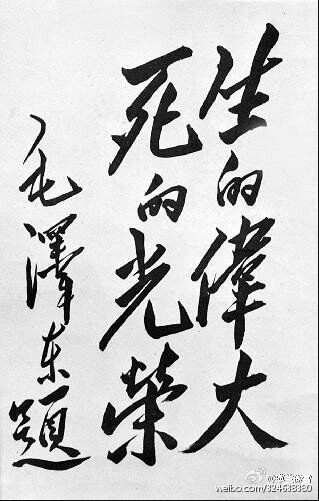 生的偉大
死的光榮
毛澤东題
weibo.com/324638380